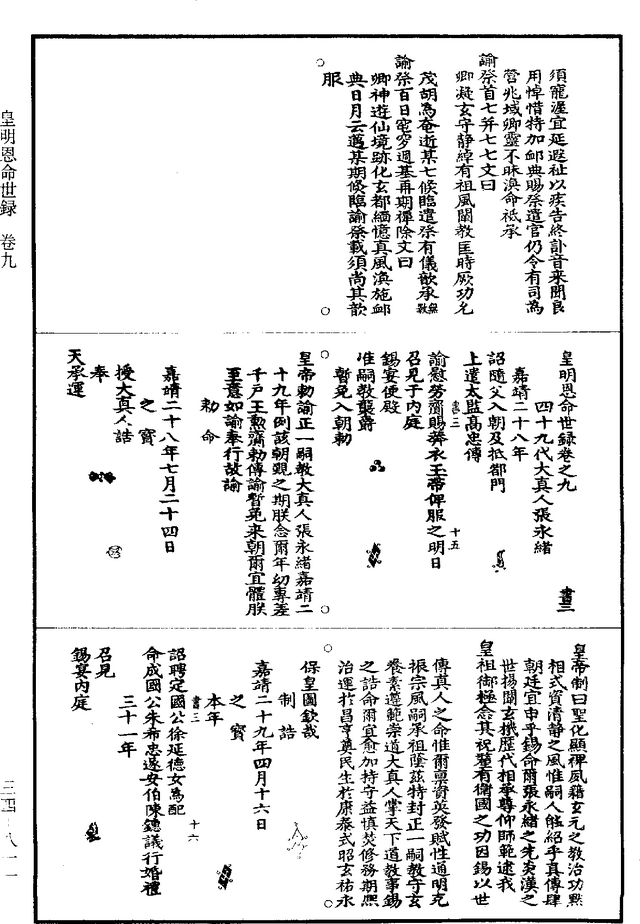 皇明恩命世録 卷九
須寵渥宜延遐祉以疾告終訃音來聞良
用悼惜特加邮典賜祭遣官仍令有司為
營兆域卿靈不昧渙命祗承
諭祭首七并七七文曰
卿凝玄守静綽有祖風闡教匡時厥功尤
茂胡為奄逝某七候臨遣祭有儀歆承無斁
諭祭百日窀穸週朞再期禫除文曰
卿神遊仙境跡化玄都緬憶真風渙施邮
典日月云邁某期倏臨諭祭載須尚其歆
服
皇明恩命世録卷之九
書三
四十九代大真人張永緒
嘉靖二十八年
詔隨父入朝及抵都門
上遣太監高忠傳
諭慰勞齎賜蟒衣玉帶俾服之明日
書三 十五
召見于内庭
錫宴便殿
准嗣教襲爵
暫免入朝勅
皇帝勅諭正一嗣教大真人張永緒嘉靖二
十九年例該朝覲之期朕念爾年幼專差
千戶王勲齎勅傳諭暫免来朝爾宜體朕
至意如諭奉行故諭
勅命
嘉靖二十八年七月二十四日
之寳
授大真人誥
奉
天承運
皇帝制曰聖化顯禆夙藉玄元之教治功黙
相式資清静之風惟嗣人能紹乎真傳肆
朝廷宜申乎錫命爾張永緒之先炎漢之
世揚闡玄機歷代相承尊仰師範逮我
皇祖御極念其祝釐有衛國之功因錫以世
傳真人之命惟爾禀資英發賦性通明克
振宗風嗣承祖蔭兹特封正一嗣教守玄
養素遵範崇道大真人掌天下道教事錫
之誥命爾宜愈加持守益慎焚修務期熙
治運於昌亨奠民生於康泰式昭玄祐永
保皇圖欽哉
制誥
嘉靖二十九年四月十六日
之寳
本年
書三 十六
詔聘定國公徐延德女為配
命成國公朱希忠遂安伯陳鏸議行婚禮
三十一年
召見
錫宴内庭
三四—八一一